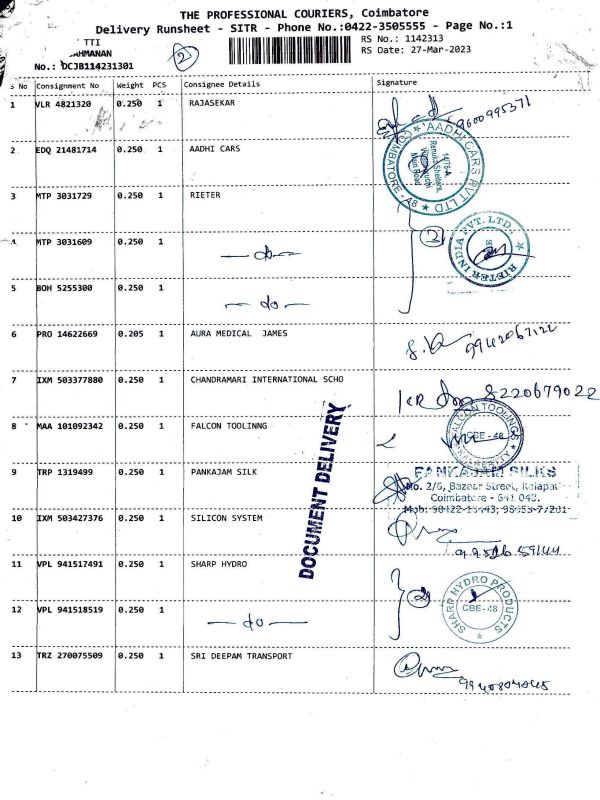 THE PROFESSIONAL COURIERS, Coimbatore
Delivery Runsheet - SITR - Phone No.:0422-3505555 - Page No.:1
TTI
RS No.: 1142313
AHMANAN
2
RS Date: 27-Mar-2023
No.: DCJB114231301
S No Consignment No Weight PCS Consignee Details Signature
1 VLR 4821320 0.250 1 RAJASEKAR
9600995371
2 EDQ 21481714 0.250 1 AADHI CARS
AADHI CARS PVT LTD
COIMBATORE - 48
Main Road
3 MTP 3031729 0.250 1 RIETER
4 MTP 3031609 0.250 1
— do —
RIETER INDIA PVT. LTD.
5 BOH 5255300 0.250 1
— do —
6 PRO 14622669 0.205 1 AURA MEDICAL JAMES
7 IXM 503377880 0.250 1 CHANDRAMARI INTERNATIONAL SCHO
8220679022
8 MAA 101092342 0.250 1 FALCON TOOLINNG
FALCON TOOLING
CBE - 48
DOCUMENT DELIVERY
9 TRP 1319499 0.250 1 PANKAJAM SILK
PANKAJAM SILKS
No. 2/6, Bazaar Street, Kalapat
Coimbatore - 641 048.
10 IXM 503427376 0.250 1 SILICON SYSTEM
11 VPL 941517491 0.250 1 SHARP HYDRO
SHARP HYDRO PRODUCTS
CBE-48
12 VPL 941518519 0.250 1
— do —
2
13 TRZ 270075509 0.250 1 SRI DEEPAM TRANSPORT